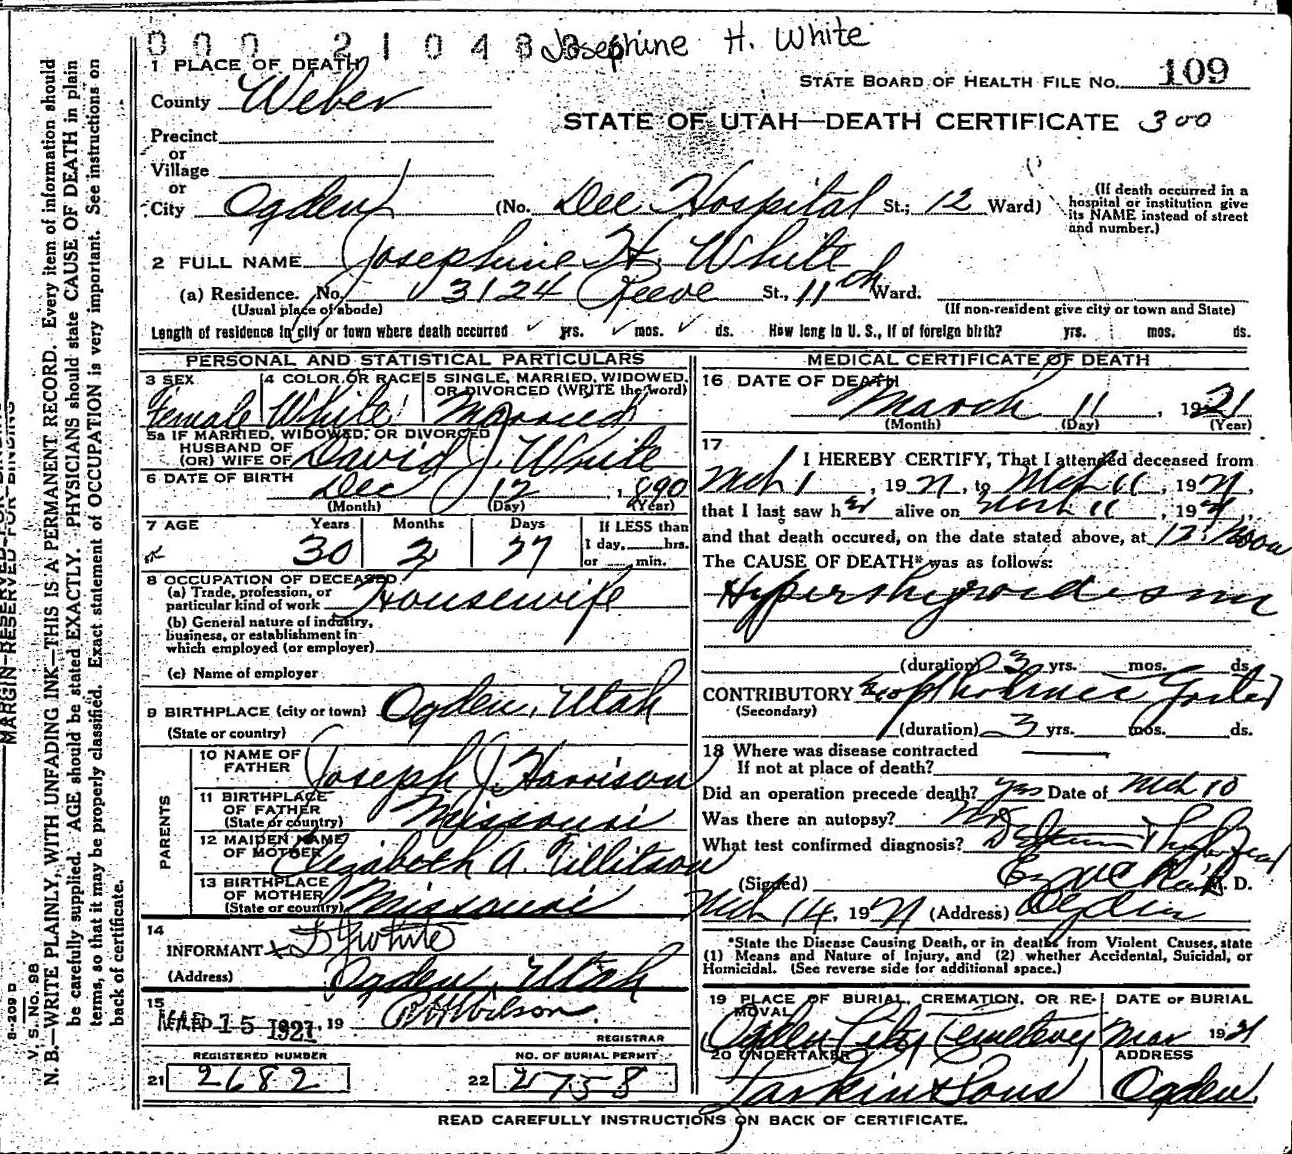 Josephine H. White
1 PLACE OF DEATH
STATE BOARD OF HEALTH FILE No. 109
County Weber
STATE OF UTAH—DEATH CERTIFICATE 300
Precinct
or
Village
or
City Ogden (No. Dee Hospital St.; 12 Ward) (If death occurred in a hospital or institution give its NAME instead of street and number.)
2 FULL NAME Josephine H. White
(a) Residence. No. 3124 Reeve St., 11th Ward.
(Usual place of abode) (If non-resident give city or town and State)
Length of residence in city or town where death occurred yrs. mos. ds. How long in U. S., if of foreign birth? yrs. mos. ds.
PERSONAL AND STATISTICAL PARTICULARS
3 SEX 4 COLOR OR RACE 5 SINGLE, MARRIED, WIDOWED, OR DIVORCED (WRITE the word)
Female White Married
5a IF MARRIED, WIDOWED, OR DIVORCED
HUSBAND OF
(OR) WIFE OF David J. White
6 DATE OF BIRTH Dec 12, 1890
(Month) (Day) (Year)
7 AGE Years Months Days If LESS than
30 2 27 1 day, hrs.
or min.
8 OCCUPATION OF DECEASED
(a) Trade, profession, or
particular kind of work Housewife
(b) General nature of industry,
business, or establishment in
which employed (or employer)
(c) Name of employer
9 BIRTHPLACE (city or town) Ogden, Utah
(State or country)
PARENTS
10 NAME OF FATHER Joseph J. Harrison
11 BIRTHPLACE OF FATHER (State or country) Missouri
12 MAIDEN NAME OF MOTHER Elizabeth A. Tillitson
13 BIRTHPLACE OF MOTHER (State or country) Missouri
14
INFORMANT D J White
(Address) Ogden, Utah
15
FILED 15 1921, 19 Wilson.
REGISTRAR
REGISTERED NUMBER NO. OF BURIAL PERMIT
21 2682 22 2758
MEDICAL CERTIFICATE OF DEATH
16 DATE OF DEATH
March 11, 1921
(Month) (Day) (Year)
17
I HEREBY CERTIFY, That I attended deceased from
Mch 1, 1921, to Mch 11, 1921,
that I last saw her alive on Mch 11, 1921,
and that death occured, on the date stated above, at 12 Noon
The CAUSE OF DEATH* was as follows:
Hyperthyroidism
(duration) 3 yrs. mos. ds.
CONTRIBUTORY Exophthalmic Goiter
(Secondary)
(duration) 3 yrs. mos. ds.
18 Where was disease contracted
If not at place of death?
Did an operation precede death? yes Date of Mch 10
Was there an autopsy? No
What test confirmed diagnosis?
(Signed) M. D.
Mch 14, 1921 (Address) Ogden
*State the Disease Causing Death, or in deaths from Violent Causes, state
(1) Means and Nature of Injury, and (2) whether Accidental, Suicidal, or
Homicidal. (See reverse side for additional space.)
19 PLACE OF BURIAL, CREMATION, OR REMOVAL DATE OF BURIAL
Ogden City Cemetery Mar 1921
20 UNDERTAKER ADDRESS
Larkin & Sons Ogden.
READ CAREFULLY INSTRUCTIONS ON BACK OF CERTIFICATE.
MARGIN RESERVED FOR BINDING
N. B.—WRITE PLAINLY, WITH UNFADING INK—THIS IS A PERMANENT RECORD. Every item of information should
be carefully supplied. AGE should be stated EXACTLY. PHYSICIANS should state CAUSE OF DEATH in plain
terms, so that it may be properly classified. Exact statement of OCCUPATION is very important. See instructions on
back of certificate.
V. S. No. 98